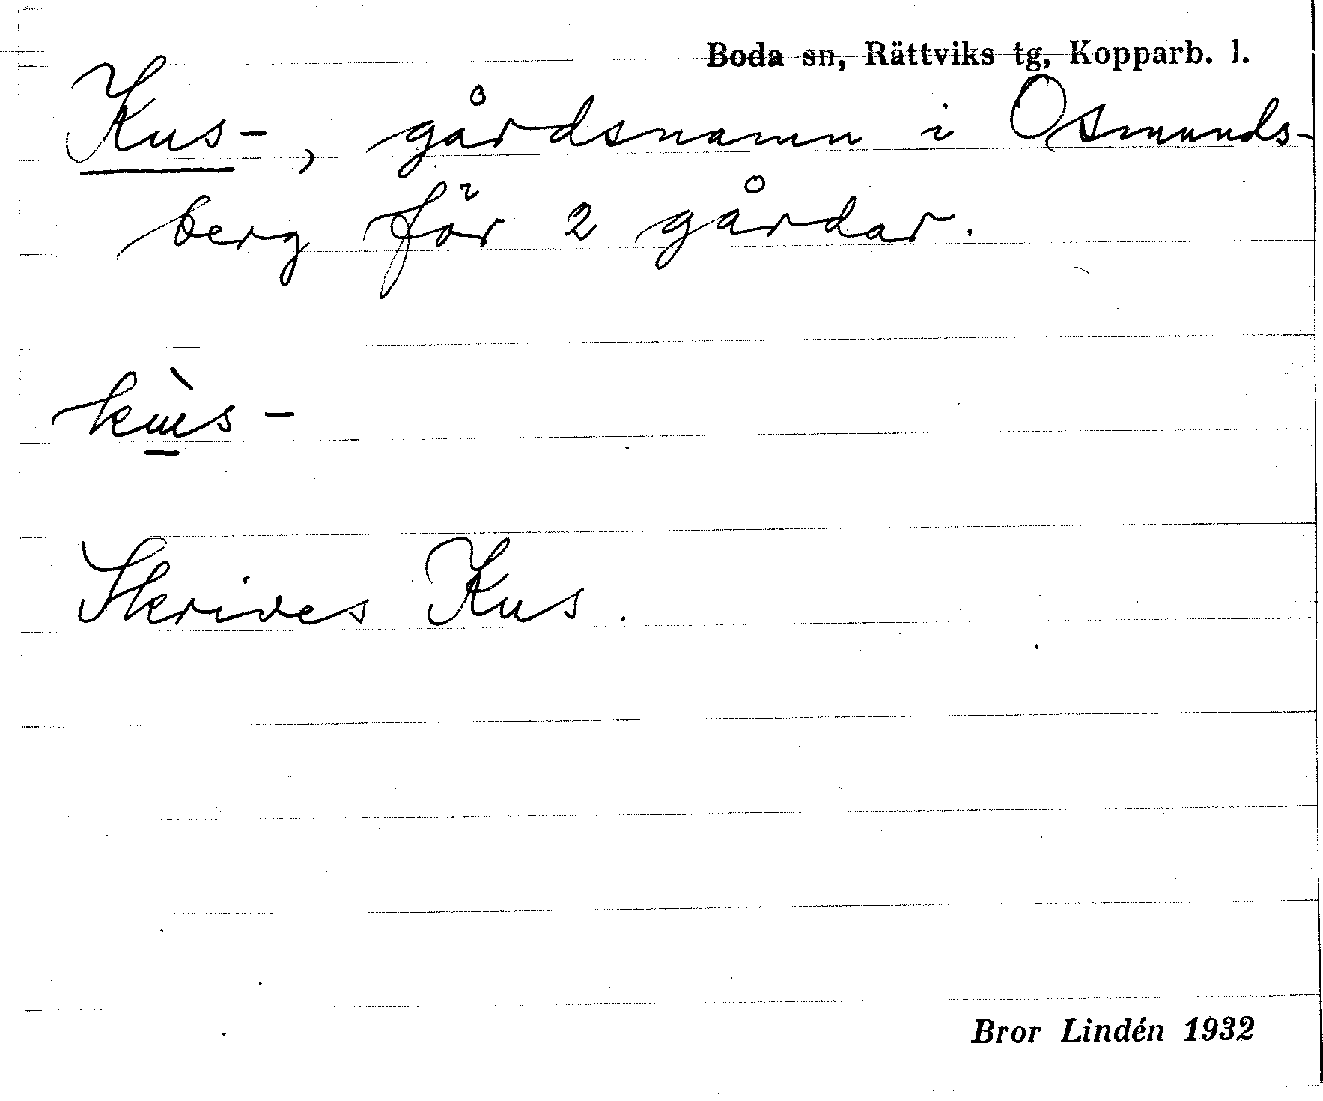 Boda sn, Rättviks tg, Kopparb. l.
Kus-, gårdsnamn i Osmunds-
berg för 2 gårdar.
kùs-
Skrives Kus.
Bror Lindén 1932